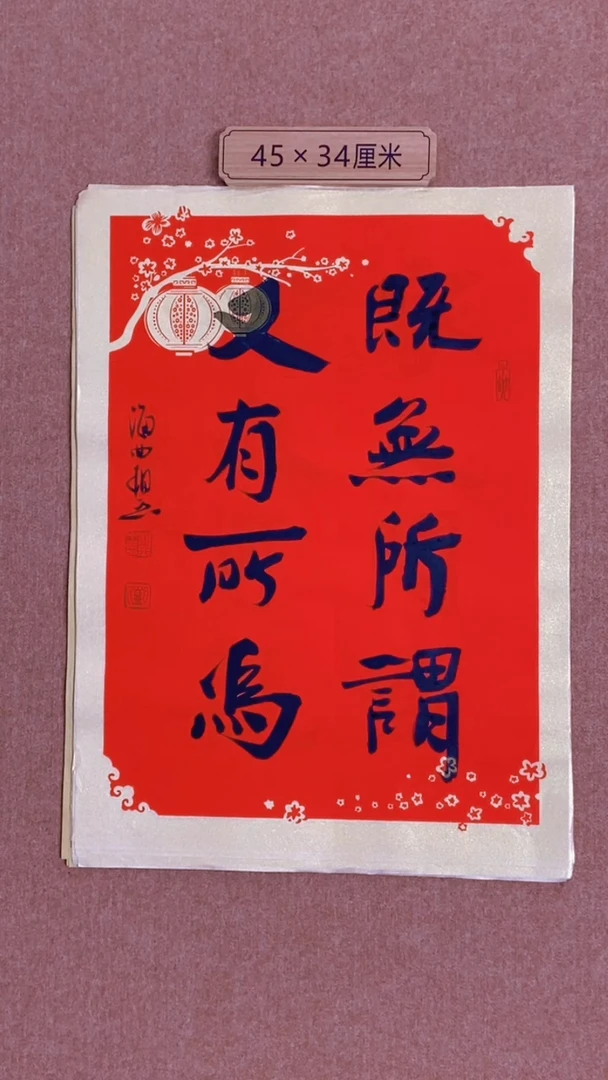 45×34厘米
既無所謂
又有所為